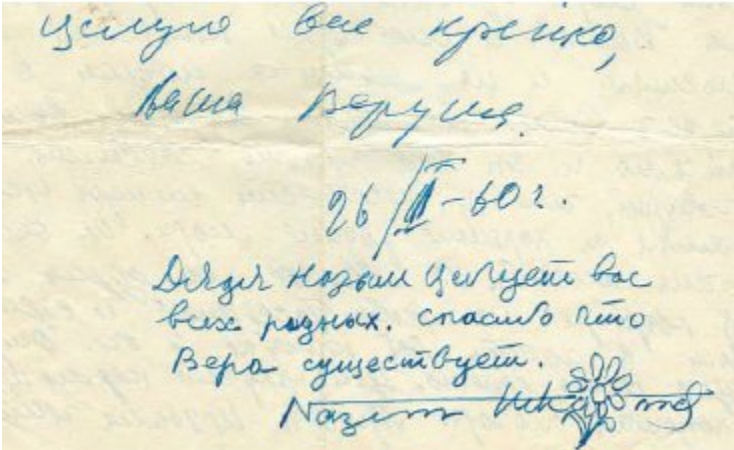 Целую вас крепко,
Ваша Веруша.
26/II-60 г.
Дядя Назым целует вас
всех родных. спасибо что
Вера существует.
Nazim Hikmet